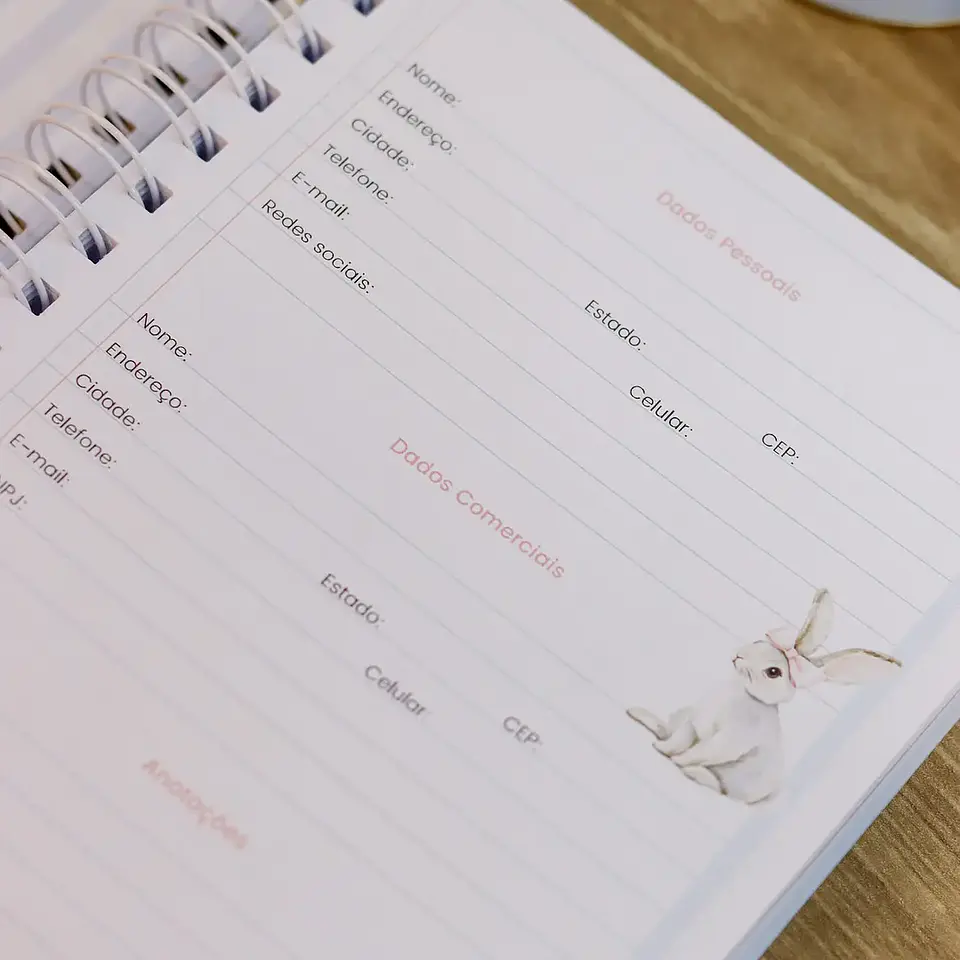 Dados Pessoais
Nome:
Endereço:
Cidade: Estado: CEP:
Telefone: Celular:
E-mail:
Redes sociais:
Dados Comerciais
Nome:
Endereço:
Cidade: Estado: CEP:
Telefone: Celular
E-mail:
Anotações